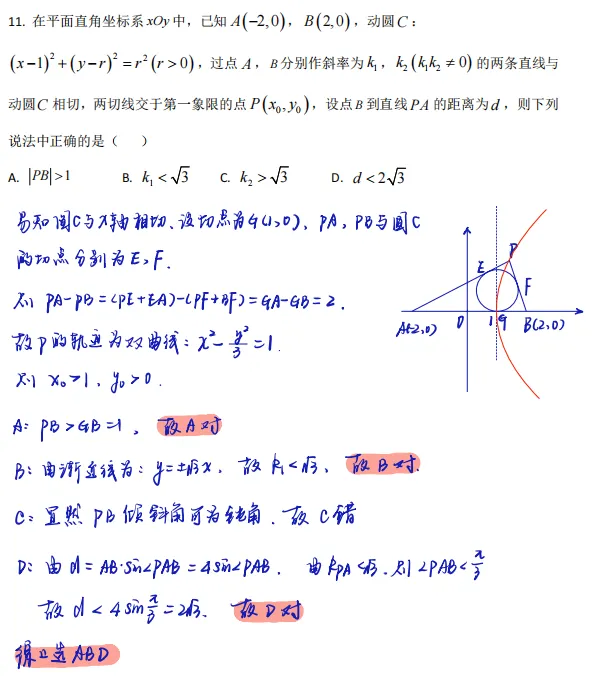 11. 在平面直角坐标系 xOy 中，已知 A(-2,0)，B(2,0)，动圆 C：
(x-1)²+(y-r)²=r²(r>0)，过点 A，B 分别作斜率为 k₁，k₂(k₁k₂≠0) 的两条直线与
动圆 C 相切，两切线交于第一象限的点 P(x₀,y₀)，设点 B 到直线 PA 的距离为 d，则下列
说法中正确的是（ ）
A. |PB|>1 B. k₁<√3 C. k₂>√3 D. d<2√3
易知圆C与x轴相切、设切点为G(1,0)、PA、PB与圆C
的切点分别为E、F.
则 PA-PB=(PE+EA)-(PF+BF)=GA-GB=2.
故P的轨迹为双曲线：x²-y²/3=1.
则 x₀>1、y₀>0.
A: PB>GB=1，故A对
B: 由渐近线为：y=±√3x，故k₁<√3，故B对.
C: 显然PB倾斜角可为钝角．故C错
D: 由d=AB·sin∠PAB=4sin∠PAB．由k_PA<√3，则∠PAB<π/3
故d<4sinπ/3=2√3．故D对
综上选ABD
P
E
F
A(-2,0) O 1 G B(2,0)